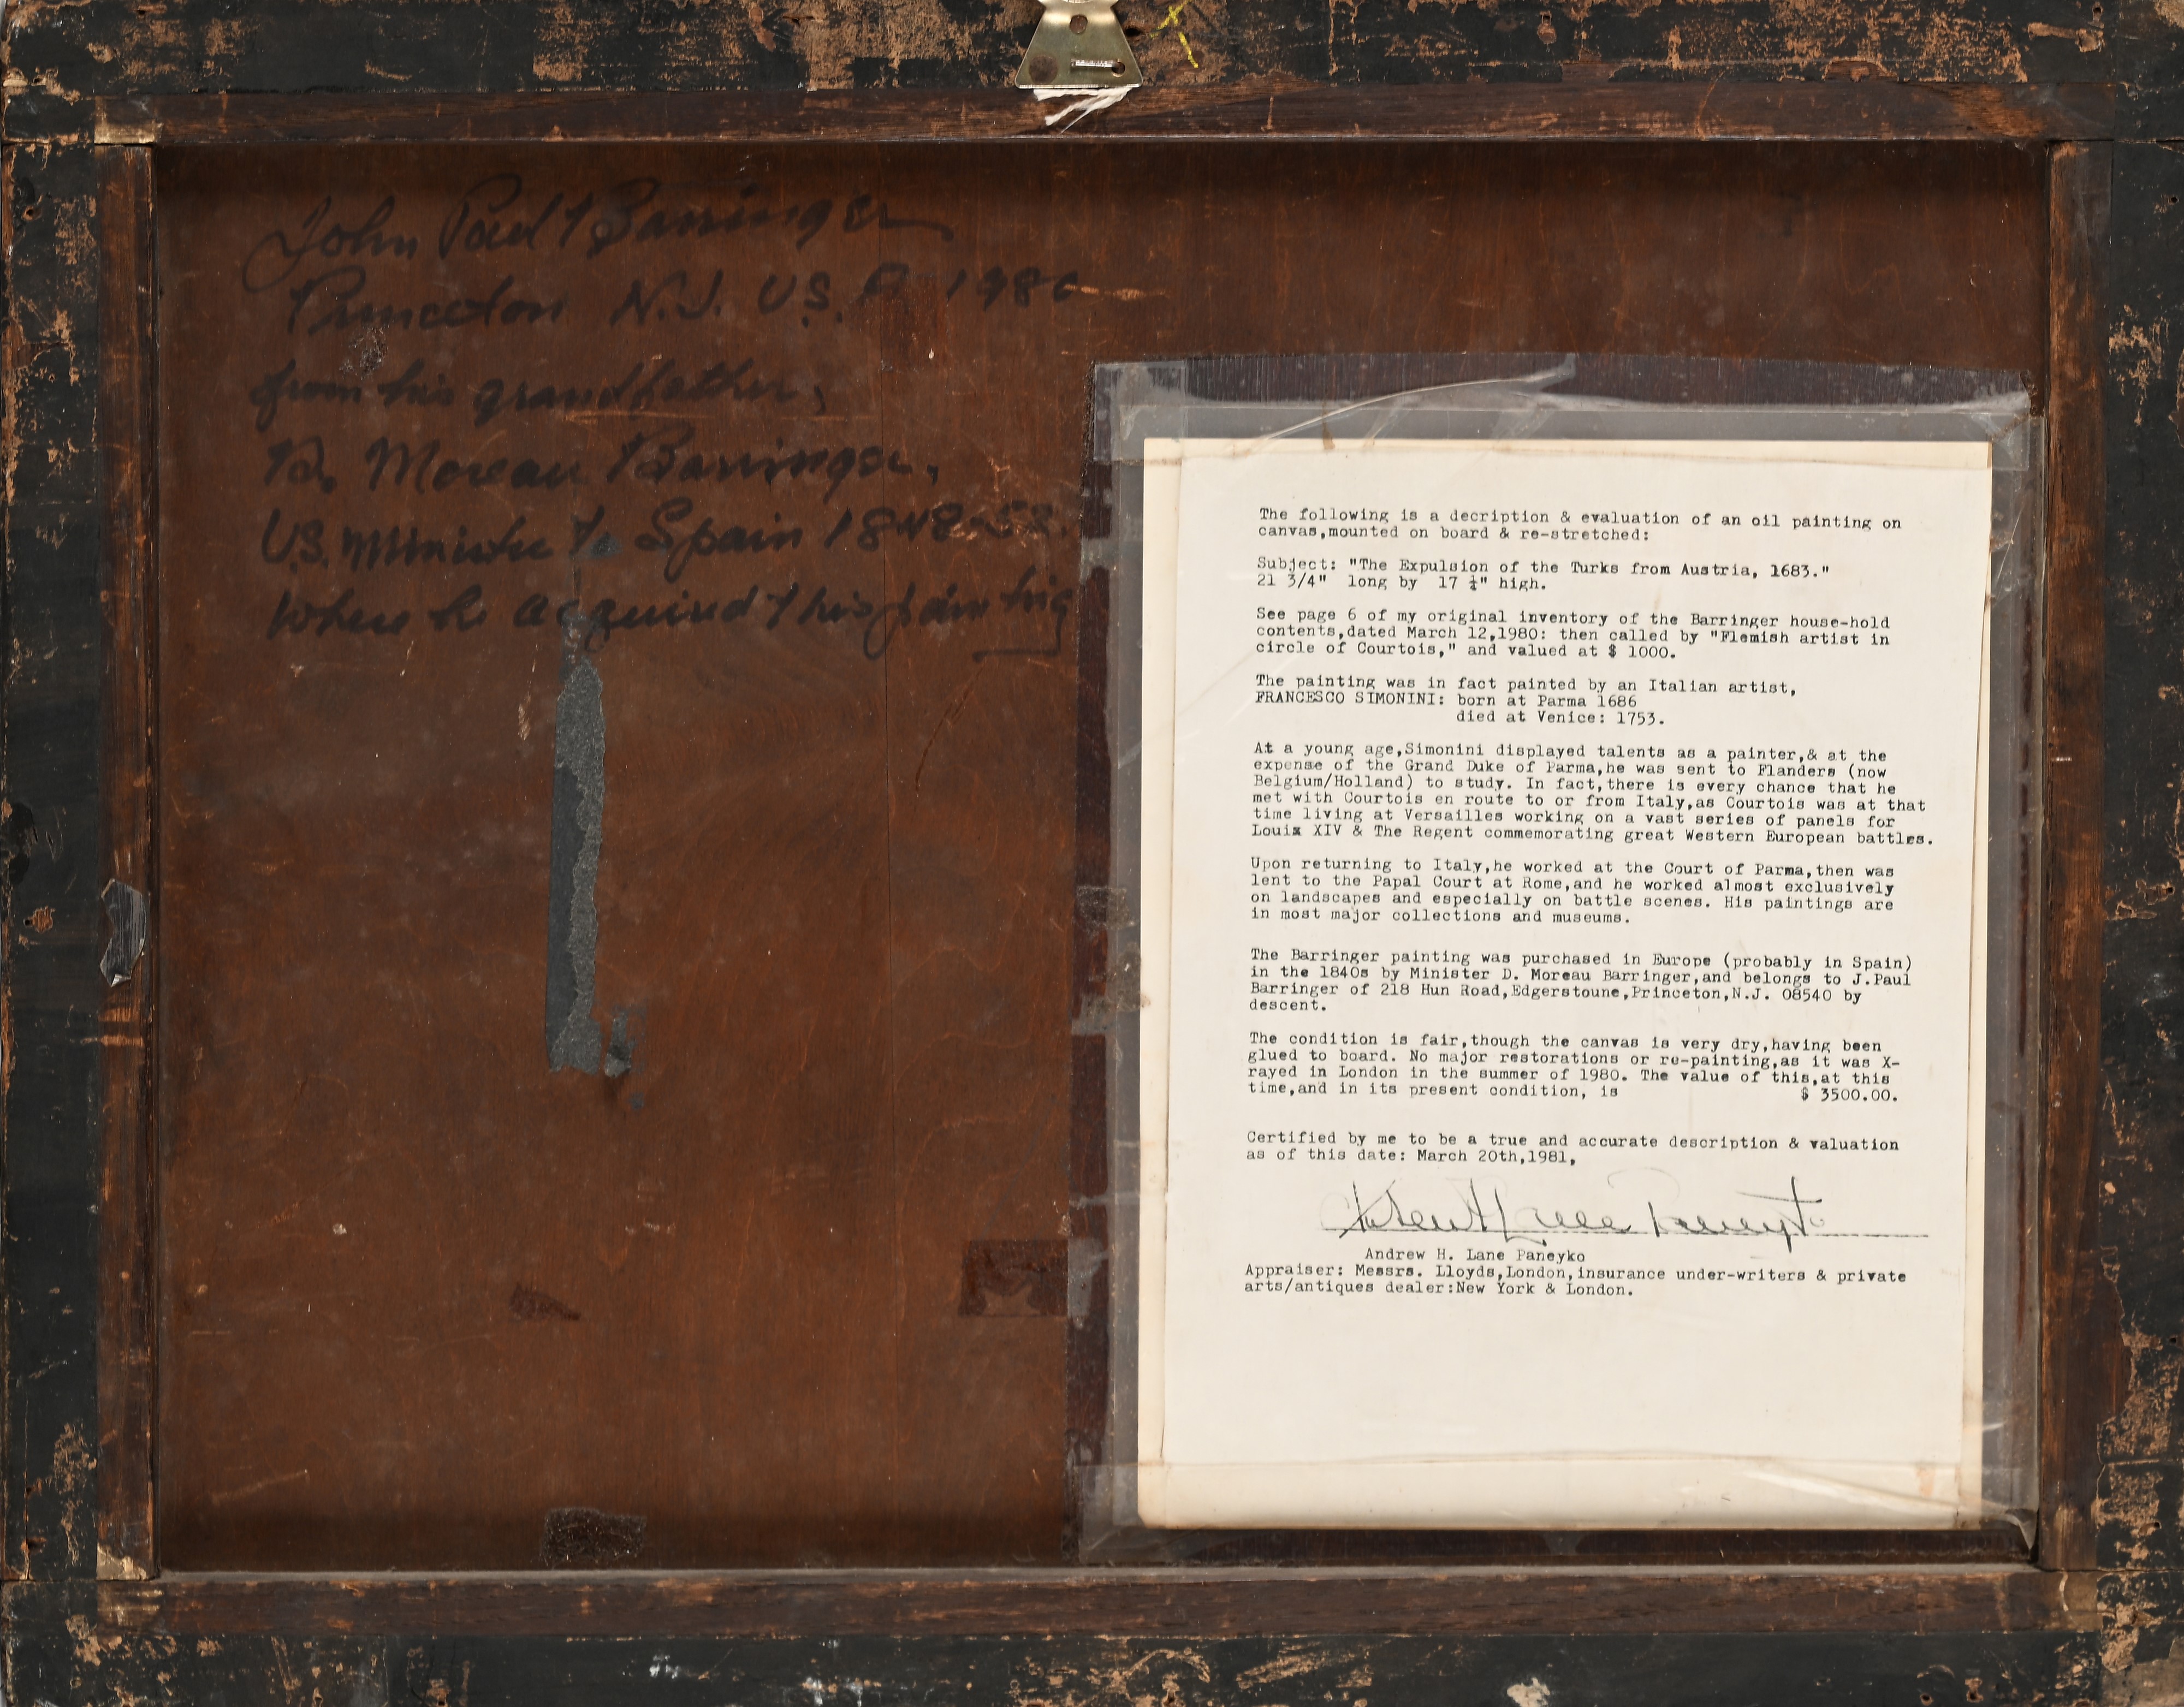 John Paul Barringer
Princeton N.J. U.S.A 1980
from his grandfather,
D. Moreau Barringer,
U.S. Minister to Spain 1848-53.
Where he acquired this painting
The following is a decription & evaluation of an oil painting on
canvas,mounted on board & re-stretched:
Subject: "The Expulsion of the Turks from Austria, 1683."
21 3/4" long by 17 ¼" high.
See page 6 of my original inventory of the Barringer house-hold
contents,dated March 12,1980: then called by "Flemish artist in
circle of Courtois," and valued at $ 1000.
The painting was in fact painted by an Italian artist,
FRANCESCO SIMONINI: born at Parma 1686
died at Venice: 1753.
At a young age,Simonini displayed talents as a painter,& at the
expense of the Grand Duke of Parma,he was sent to Flanders (now
Belgium/Holland) to study. In fact,there is every chance that he
met with Courtois en route to or from Italy,as Courtois was at that
time living at Versailles working on a vast series of panels for
Louix XIV & The Regent commemorating great Western European battles.
Upon returning to Italy,he worked at the Court of Parma,then was
lent to the Papal Court at Rome,and he worked almost exclusively
on landscapes and especially on battle scenes. His paintings are
in most major collections and museums.
The Barringer painting was purchased in Europe (probably in Spain)
in the 1840s by Minister D. Moreau Barringer,and belongs to J.Paul
Barringer of 218 Hun Road,Edgerstoune,Princeton,N.J. 08540 by
descent.
The condition is fair,though the canvas is very dry,having been
glued to board. No major restorations or re-painting,as it was X-
rayed in London in the summer of 1980. The value of this,at this
time,and in its present condition, is $ 3500.00.
Certified by me to be a true and accurate description & valuation
as of this date: March 20th,1981,
Andrew H. Lane Paneyko
Appraiser: Messrs. Lloyds,London,insurance under-writers & private
arts/antiques dealer:New York & London.